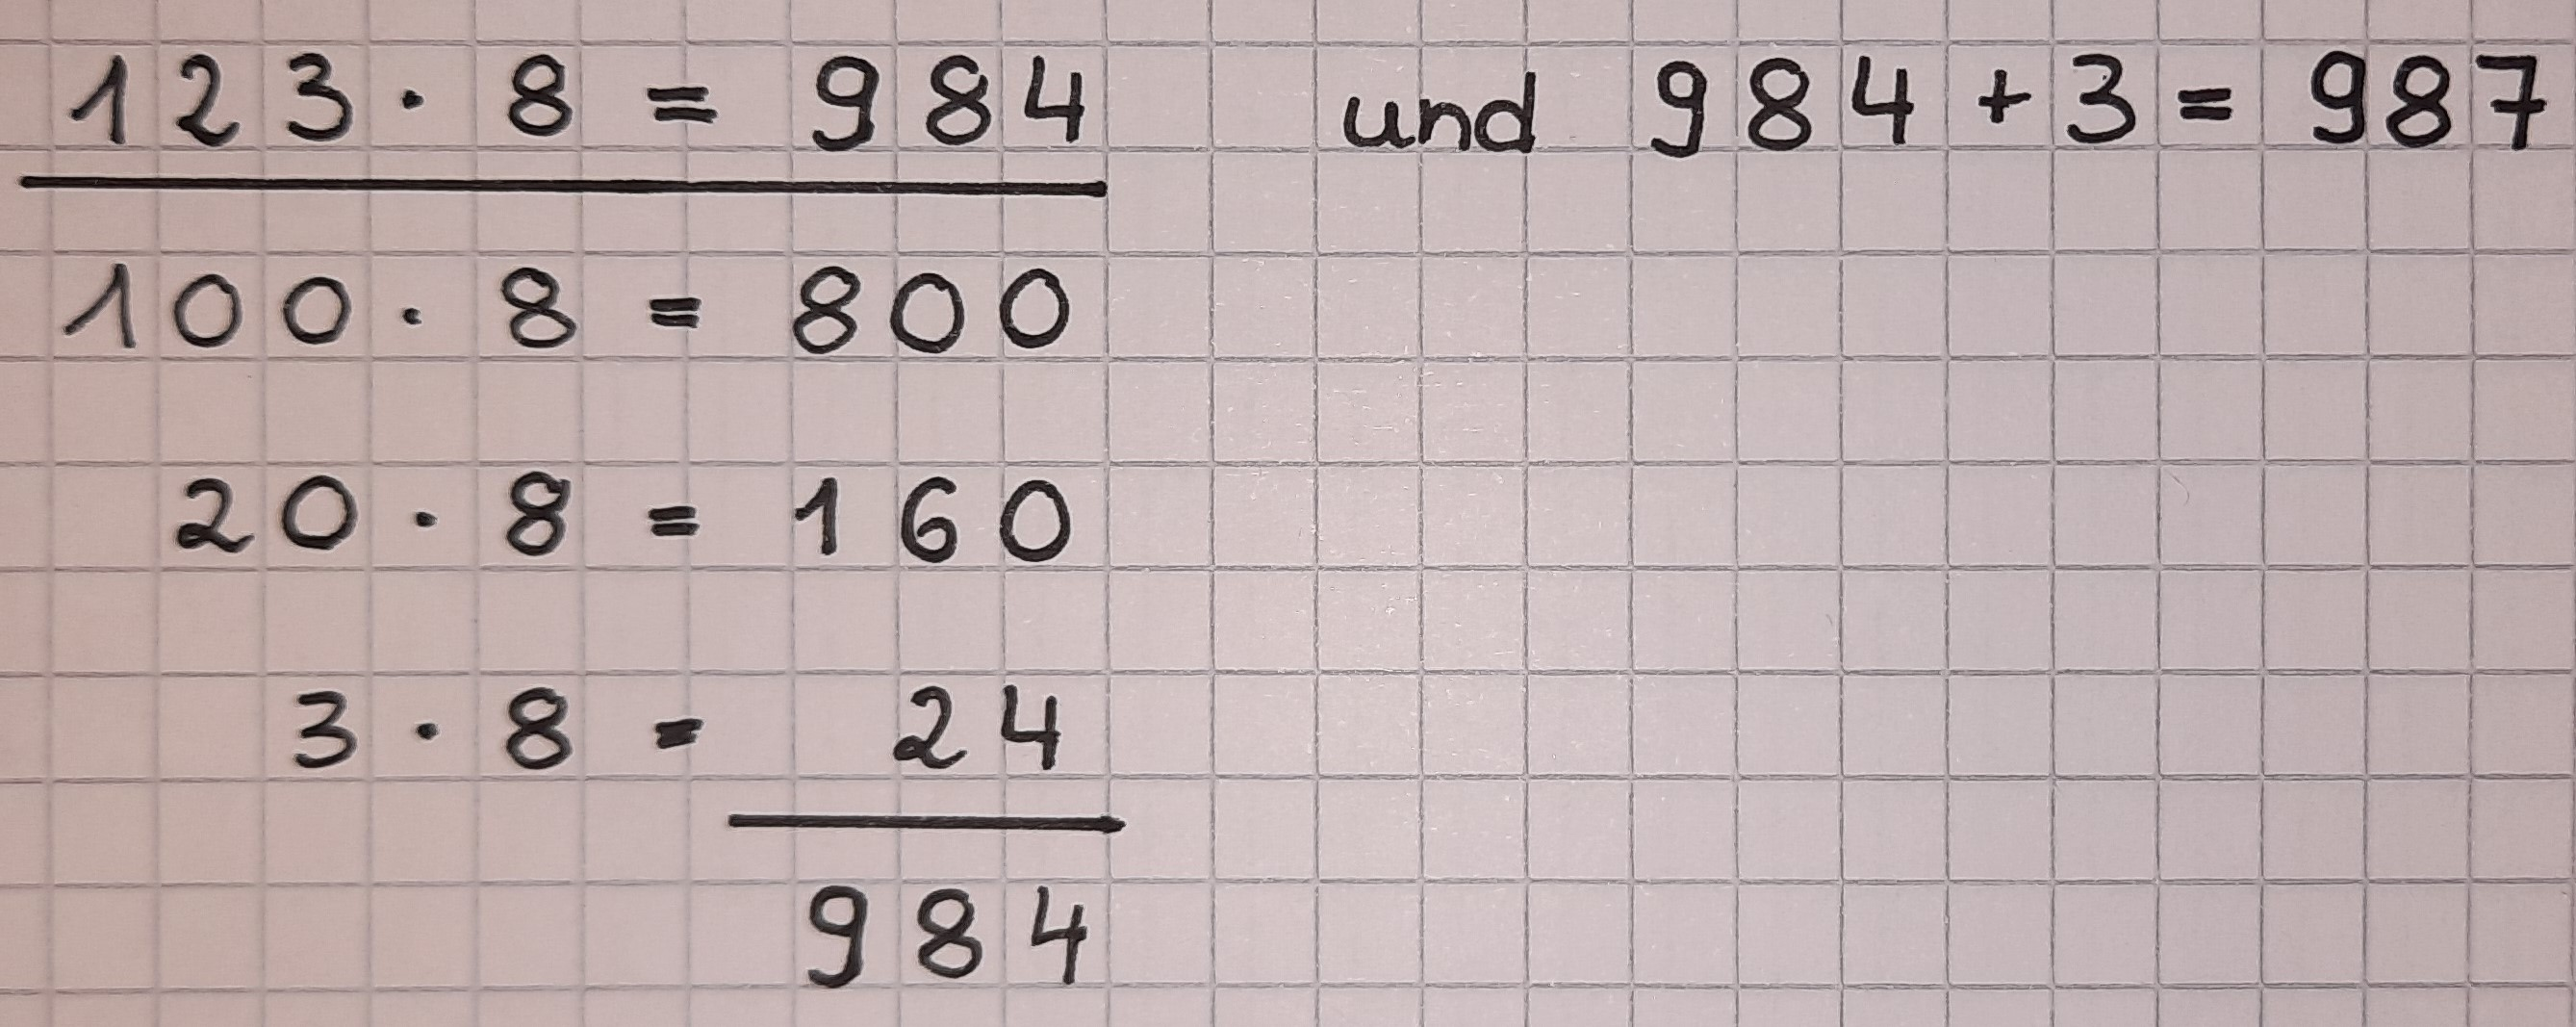 123 · 8 = 984 und 984 + 3 = 987
100 · 8 = 800
20 · 8 = 160
3 · 8 = 24
984